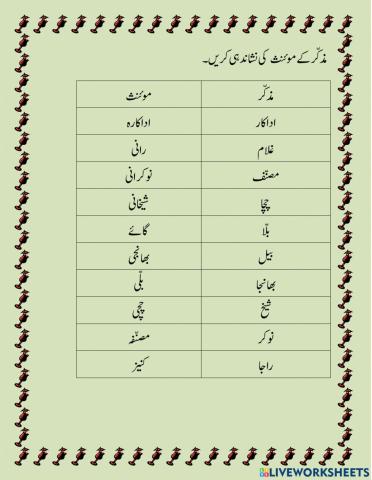 مذکّر کے موئنث کی نشاندہی کریں۔
مذکّر موئنث
اداکار اداکارہ
غلام رانی
مصنّف نوکرانی
چچا شیخانی
بلّا گائے
بیل بھانجی
بھانجا بلّی
شیخ چچی
نوکر مصنّفہ
راجا کنیز
LIVEWORKSHEETS